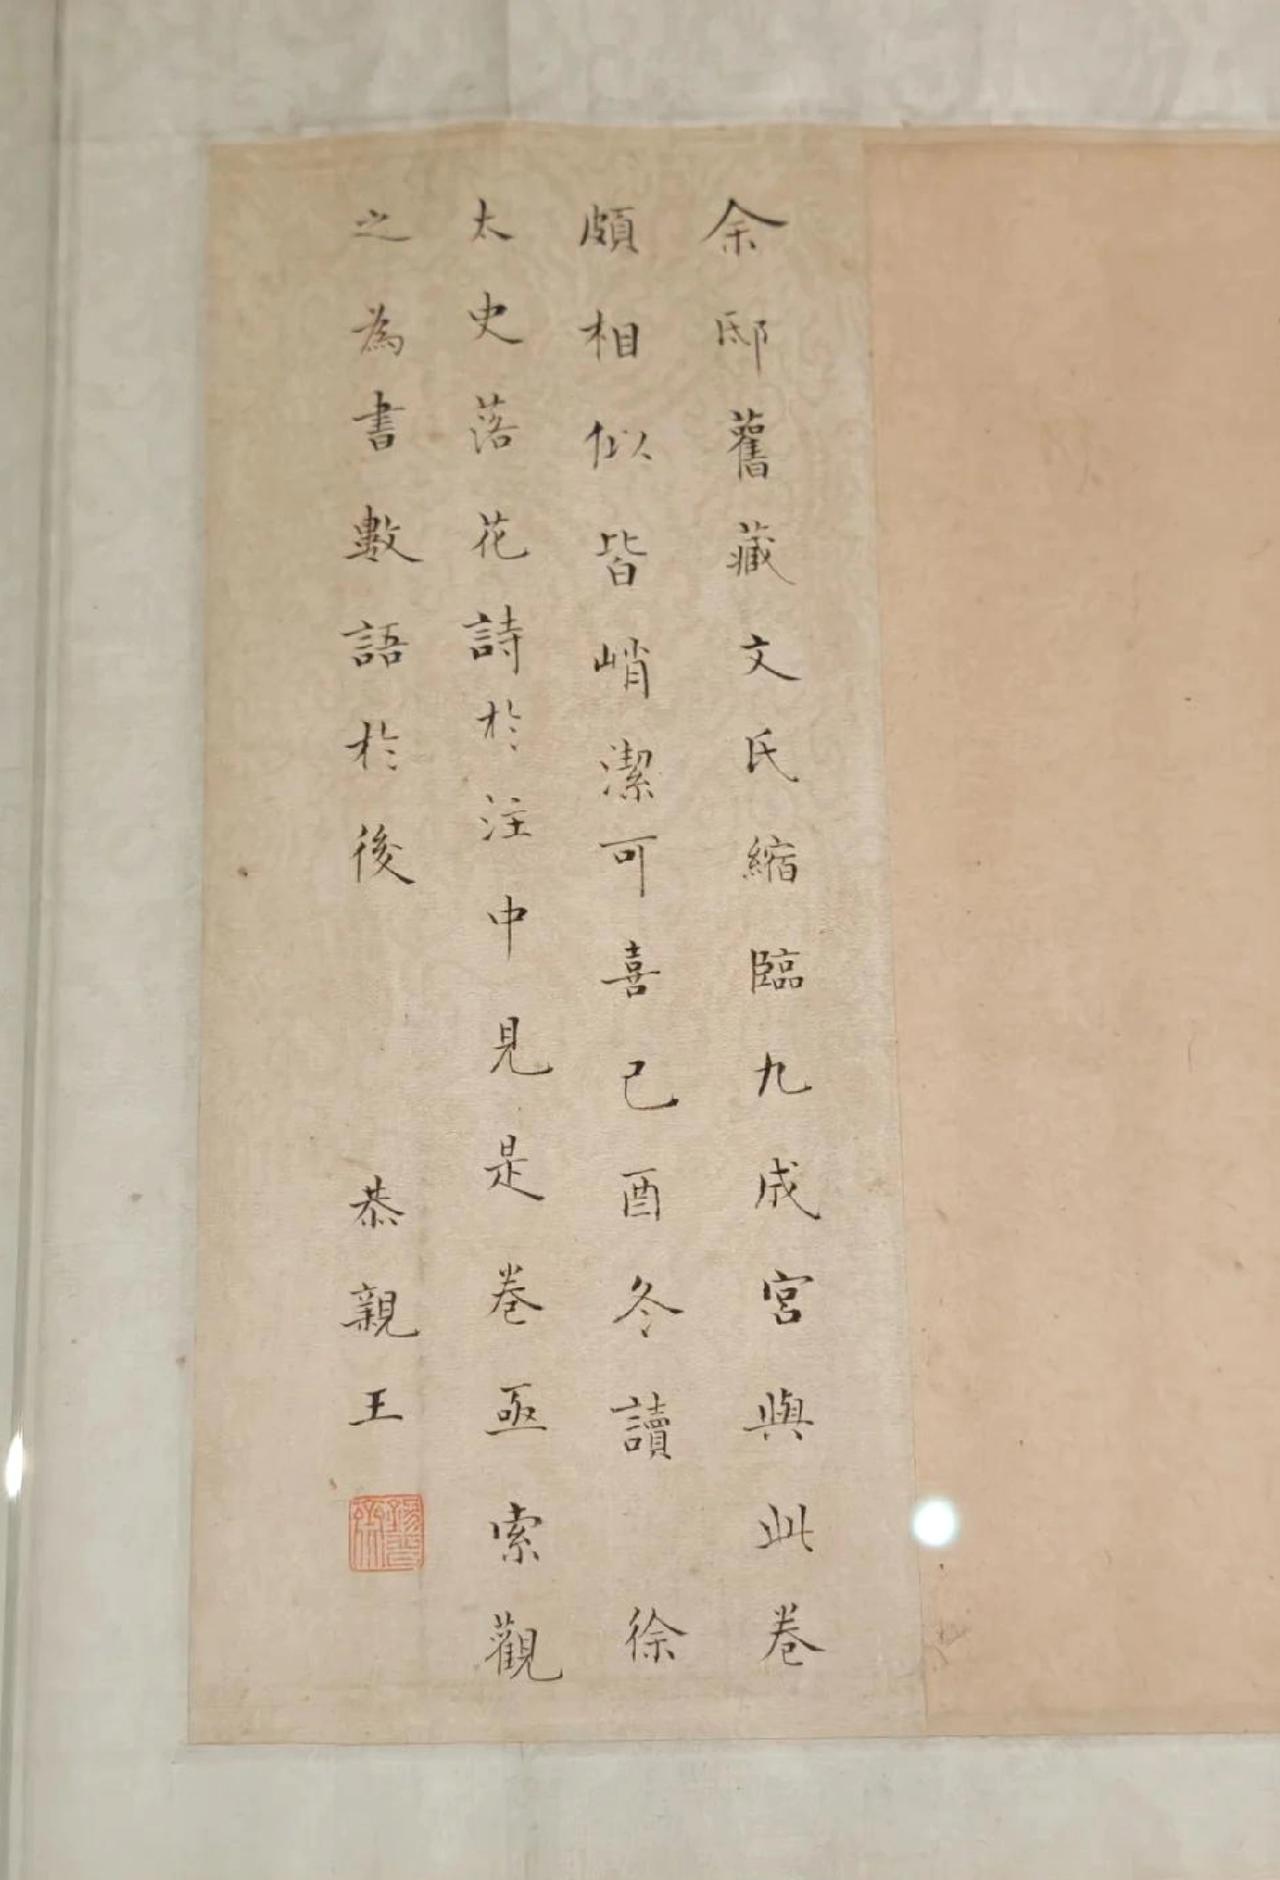 余邸舊藏文氏縮臨九成宮與此卷
頗相似皆峭潔可喜己酉冬讀 徐
太史落花詩於注中見是卷亟索觀
之為書數語於後 恭親王